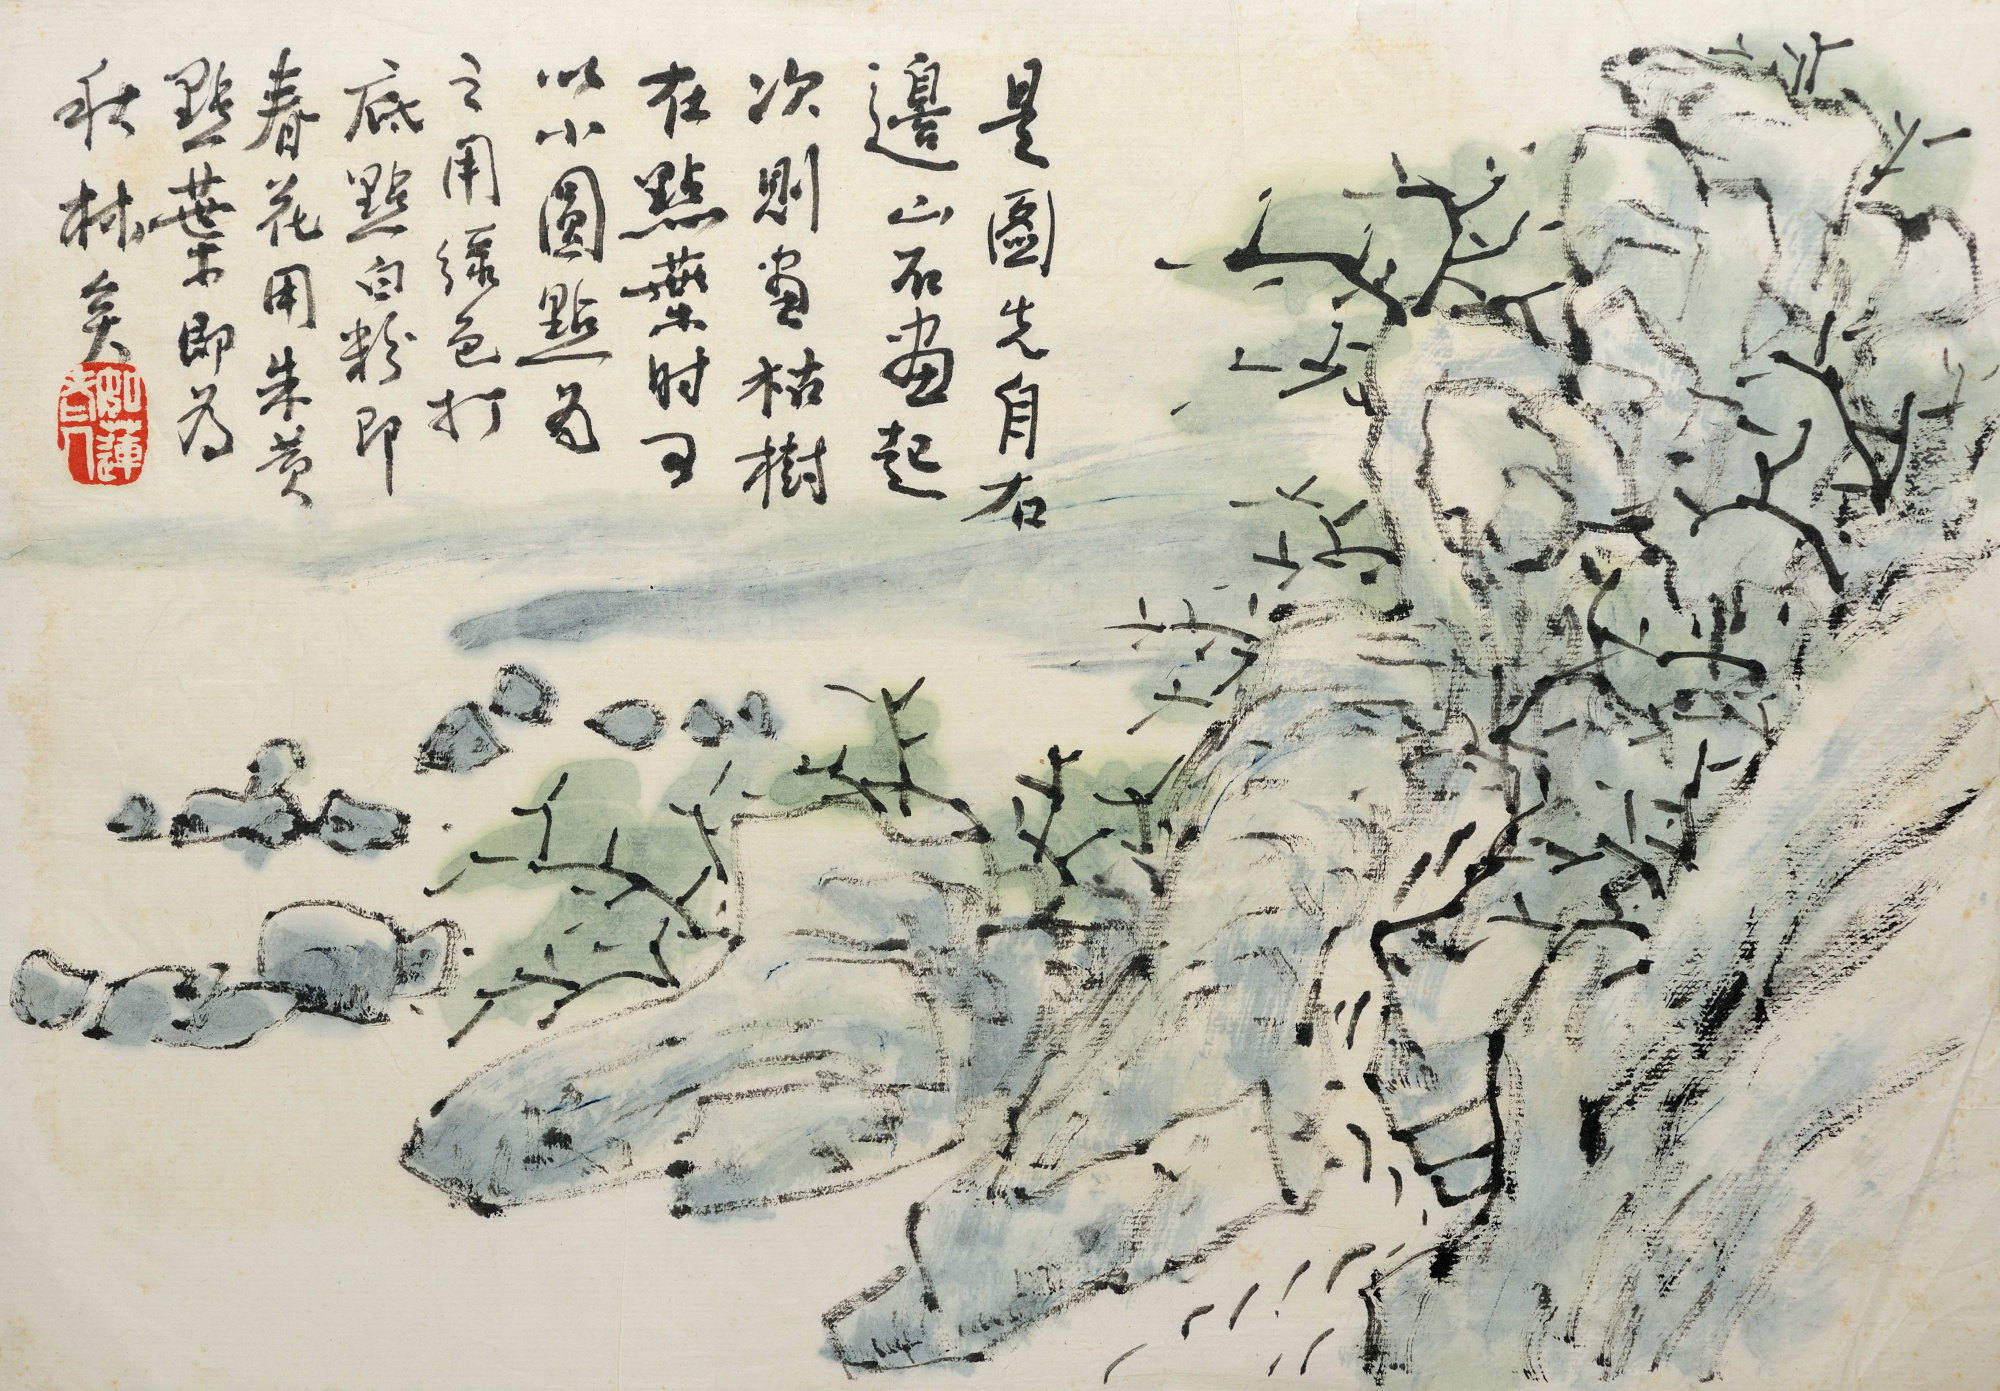 是圖先自右
邊山石畫起
次則畫枯樹
在點葉時可
以小圓點為
之用綠色打
底點白粉即
春花用朱黃
點葉即為
秋林矣